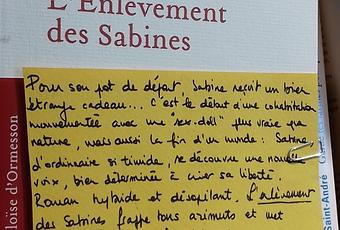 L'Enlèvement
des Sabines
Pour son pot de départ, Sabine reçoit un bien
étrange cadeau... C'est le début d'une cohabitation
mouvementée avec une "sex-doll" plus vraie que
nature, mais aussi la fin d'un monde : Sabine,
d'ordinaire si timide, se découvre une nouvelle
voix, bien déterminée à crier sa liberté.
Roman hybride et désopilant, L'enlèvement
des Sabines frappe tous azimuts et met
loïse d'Ormesson
Saint-André